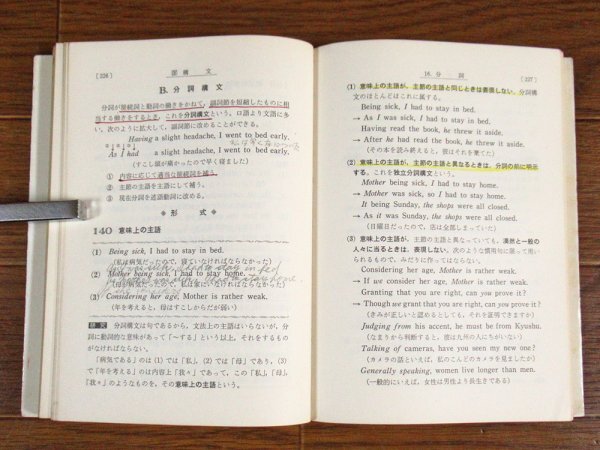 〔226〕
B. 分 詞 構 文
分詞構文は接続詞と動詞の働きをかねて，副詞節を短縮したものに相
当する働きをするとき，これを分詞構文という。口語より文語に多
い。次のように拡大して，副詞節に改めることができる。
Having a slight headache, I went to bed early.
As I had a slight headache, I went to bed early.
(すこし頭が痛かったので早く寝ました)
① 内容に応じて適当な接続詞を補う。
② 主節の主語を主語にして補う。
③ 現在分詞を述語動詞に改める。
◆ 形 式 ◆
140 意味上の主語
(1) Being sick, I had to stay in bed.
(私は病気だったので，寝ていなければならなかった)
(2) Mother being sick, I had to stay home.
(母が病気だったので，私は家にいなければならなかった)
(3) Considering her age, Mother is rather weak.
(年を考えると，母はすこしからだが弱い)
研究 分詞構文は句であるから，文法上の主語はいらないが，分
詞に動詞的な意味があって「～する」という以上，それをするもの
がなければならない。
「病気である」のは (1) では「私」，(2) では「母」であり，(3)
で「年を考える」のは内容上「我々」であって，この「私」，「母」，
「我々」のようなものを，その意味上の主語という。
16. 分 詞
〔227〕
(1) 意味上の主語が，主節の主語と同じときは表現しない。分詞構
文のほとんどはこれに属する。
Being sick, I had to stay in bed.
→ As I was sick, I had to stay in bed.
Having read the book, he threw it aside.
→ After he had read the book, he threw it aside.
(その本を読み終えると，彼はそれを棄てた)
(2) 意味上の主語が，主節の主語と異なるときは，分詞の前に明示
する。これを独立分詞構文という。
Mother being sick, I had to stay home.
→ As Mother was sick, I had to stay home.
It being Sunday, the shops were all closed.
→ As it was Sunday, the shops were all closed.
(日曜日だったので，店は全部しまっていた)
(3) 意味上の主語が，主節の主語と異なっていても，漠然と一般の
人々に当るときは，表現しない。次のような慣用句に限って用い
られるもので，みだりに作ってはならない。
Considering her age, Mother is rather weak.
→ If we consider her age, Mother is rather weak.
Granting that you are right, can you prove it?
→ Though we grant that you are right, can you prove it?
(きみが正しいと認めるとしても，それを証明できますか)
Judging from his accent, he must be from Kyushu.
(なまりから判断すると，彼は九州の人にちがいない)
Talking of cameras, have you seen my new one?
(カメラの話といえば，私のこんどのカメラを見ましたか)
Generally speaking, women live longer than men.
(一般的にいえば，女性は男性より長生きである)